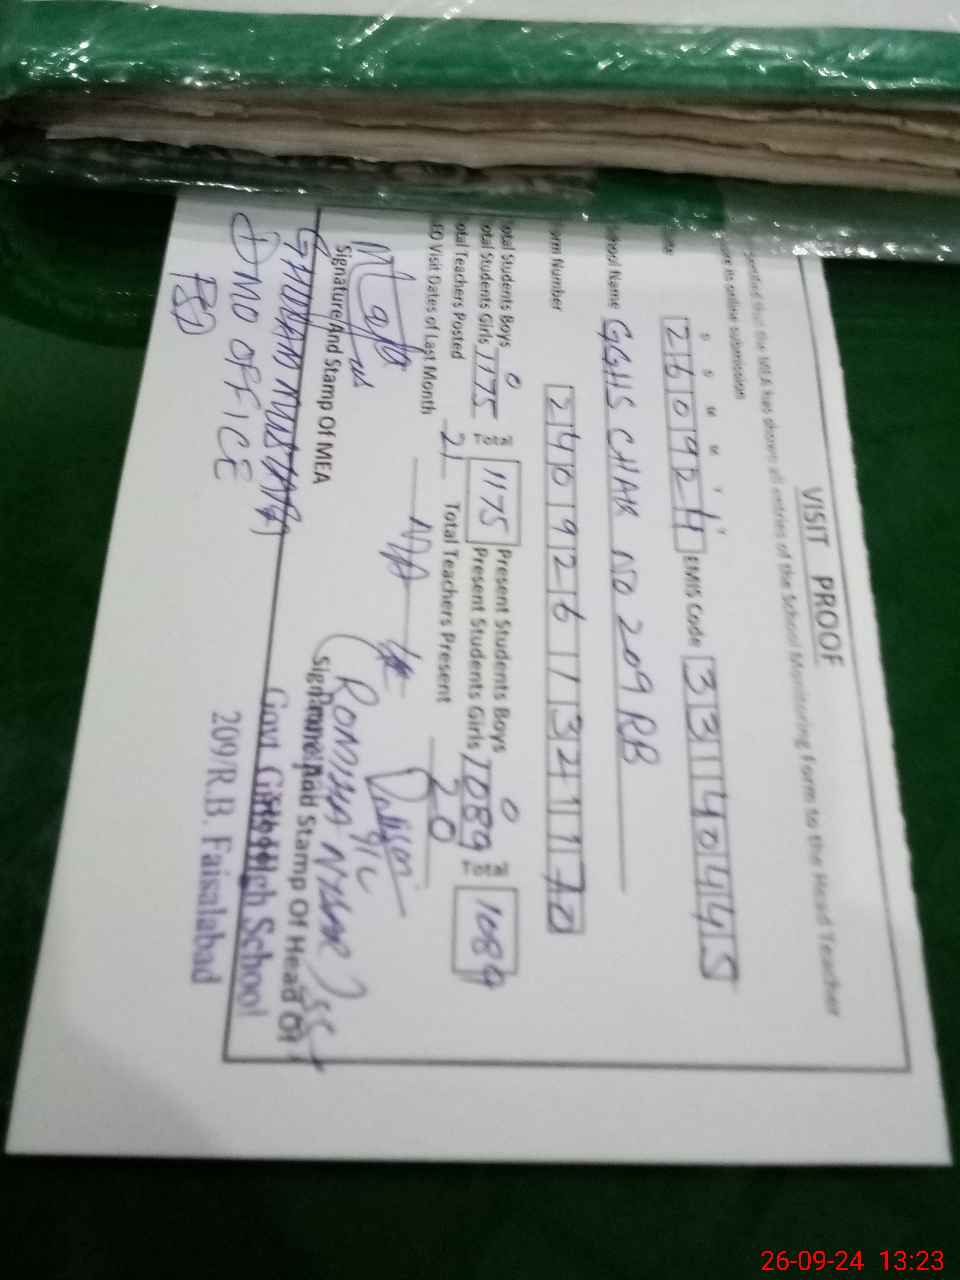 VISIT PROOF
that the MEA has shown all entries of the School Monitoring Form to the Head Teacher
its online submission
D D M M Y Y
260924 EMIS Code 33140445
School Name GGHS CHAK NO 209 RB
Form Number
Total Students Boys 0 Total 1175 Present Students Boys 0 Total 1089
Total Students Girls 1175 Present Students Girls 1089
Total Teachers Posted 21 Total Teachers Present 20
Visit Dates of Last Month N/A
Signature And Stamp Of MEA
GHULAM MUSTAFA
DMO OFFICE
FSD
I/C
Signature And Stamp Of Head Of
Principal
Govt. Girls High School
209/R.B. Faisalabad
26-09-24 13:23